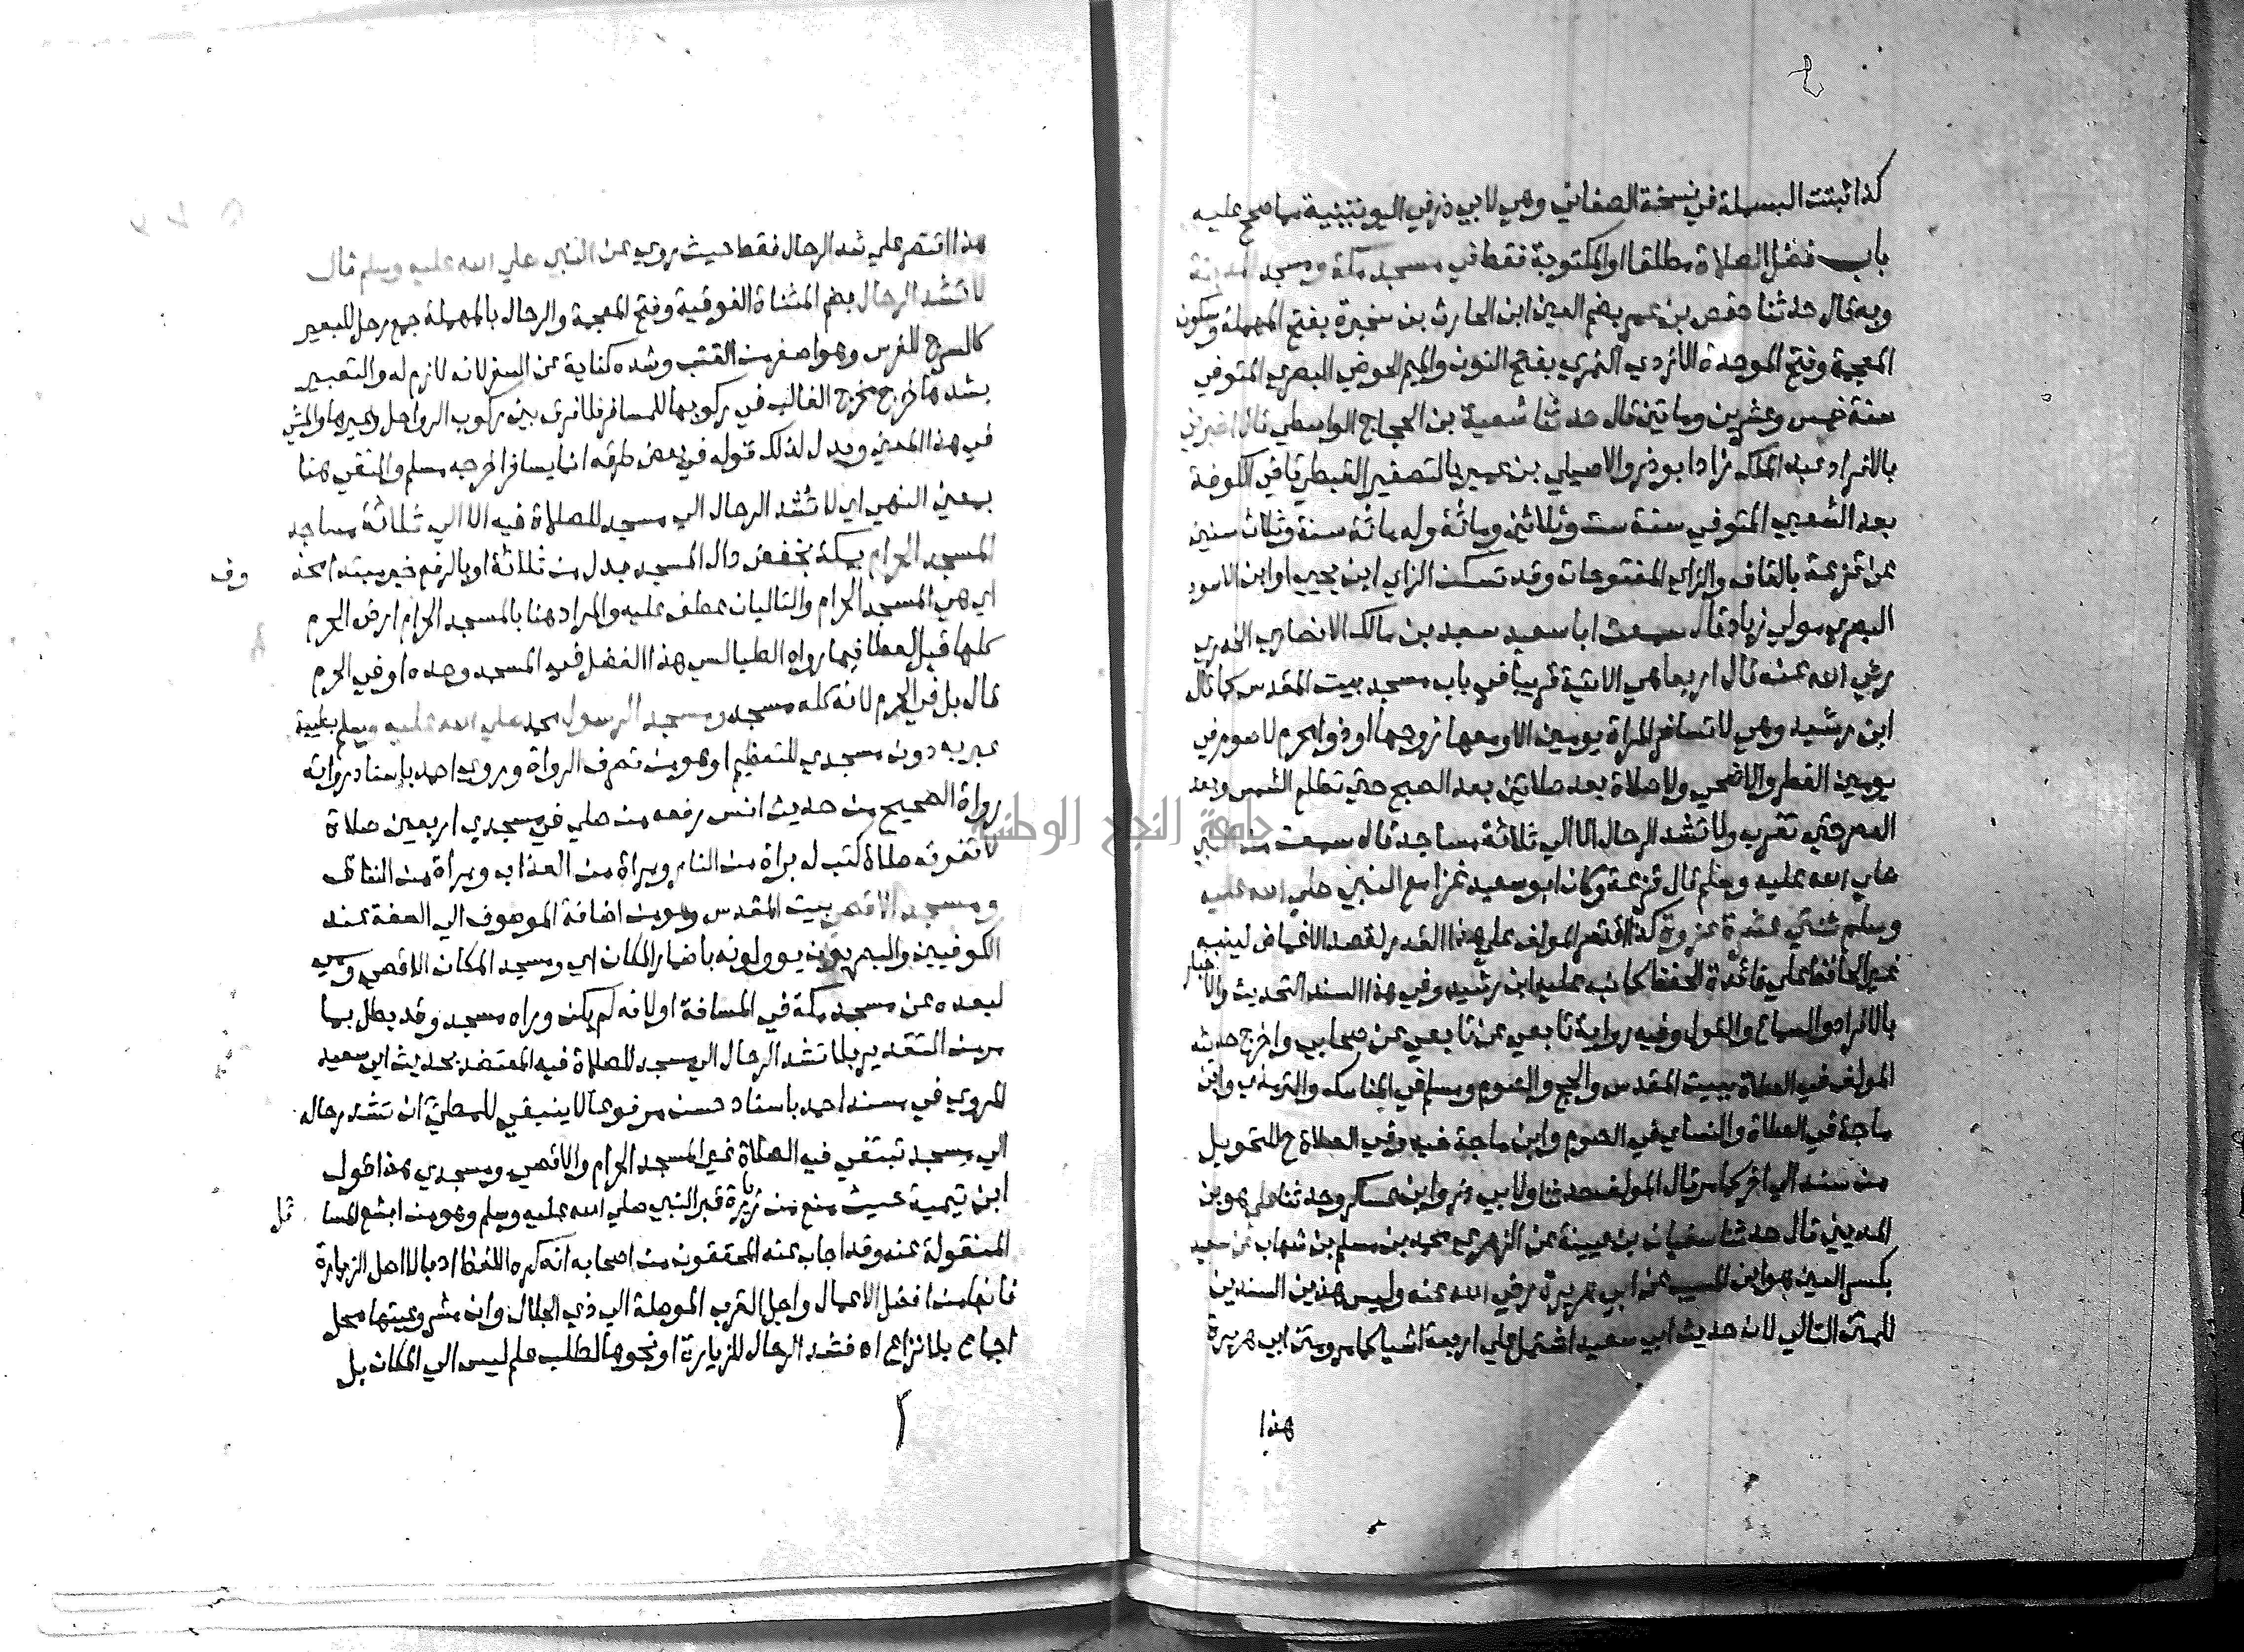 كذا ثبتت البسملة في نسخة الصغاني وهي لابي ذر في اليونينية مما صح عليه
باب فضل الصلاة مطلقا او المكتوبة فقط في مسجد مكة ومسجد المدينة
وبه قال حدثنا حفص بن عمر بضم العين ابن الحارث بن سخبرة بفتح المهملة وسكون
المعجمة وفتح الموحدة الازدي النمري بفتح النون والميم الحوضي البصري المتوفي
سنة خمس وعشرين ومايتين قال حدثنا شعبة بن الحجاج الواسطي قال اخبرني
بالافراد عبد الملك زاد ابو ذر والاصيلي بن عمير بالتصغير القبطي قاضي الكوفة
بعد الشعبي المتوفي سنة ست وثلاثين ومائة وله مائة سنة وثلاث سنين
عن قزعة بالقاف والزاي المفتوحات وقد تسكن الزاي ابن يحيى او ابن الاسود
البصري مولى زياد قال سمعت ابا سعيد سعد بن مالك الانصاري الخدري
رضي الله عنه قال اربعا هي الاتية قريبا في باب مسجد بيت المقدس كما قال
ابن رشيد وهي لا تسافر المراة يومين الا ومعها زوجها او ذو محرم لا صوم في
يومين الفطر والاضحي ولا صلاة بعد صلاتين بعد الصبح حتي تطلع الشمس وبعد
العصر حتي تغرب ولا تشد الرحال الا الي ثلاثة مساجد قال سمعت من النبي
صلي الله عليه وسلم قال قزعة وكان ابو سعيد غزا مع النبي صلي الله عليه
وسلم ثنتي عشرة غزوة كذا اقتصر المولف علي هذا القدر لقصد الاغماض لينبه
غير الحافظ علي فائدة الحفظ كما نبه عليه ابن رشيد وفي هذا السند التحديث والاخبار
بالافراد والسماع والقول وفيه رواية تابعي عن تابعي عن صحابي واخرج حديثه
المولف في الصلاة ببيت المقدس والحج والصوم ومسلم في المناسك والترمذي وابن
ماجة في الصلاة والنساي في الصوم وابن ماجة فيه وفي الصلاة ح للتحويل
من سند الي اخر كما مر قال المولف حدثنا ولابي ذر وابن عسكر وحدثنا علي هو بن
المديني قال حدثنا سفيان بن عيينة عن الزهري محمد بن مسلم بن شهاب عن سعيد
بكسر العين هو ابن المسيب عن ابي هريرة رضي الله عنه وليس هذين السندين
للمتن التالي لان حديث ابي سعيد اشتمل علي اربعة اشيا كما مر ومتن ابي هريرة
هذا
هذا اقتصر علي شد الرحال فقط حيث روي عن النبي صلي الله عليه وسلم قال
لا تشد الرحال بضم المثناة الفوقية وفتح المعجمة والرحال بالمهملة جمع رحل للبعير
كالسرج للفرس وهو اصغر من القتب وشده كناية عن السفر لانه لازم له والتعبير
بشدها خرج مخرج الغالب في ركوبها للمسافر فلا فرق بين ركوب الرواحل وغيرها والمشي
في هذا المعني ويدل لذلك قوله في بعض طرقه انما يسافر اخرجه مسلم والنفي هنا
بمعني النهي اي لا تشد الرحال الي مسجد للصلاة فيه الا الي ثلاثة مساجد
المسجد الحرام بمكة بخفض دال المسجد بدل من ثلاثة او بالرفع خبر مبتدا محذ وف
اي هي المسجد الحرام والتاليان عطف عليه والمراد هنا بالمسجد الحرام ارض الحرم
كلها قيل لعطا فيما رواه الطيالسي هذا الفضل في المسجد وحده او في الحرم
قال بل في الحرم لانه كله مسجد ومسجد الرسول محمد صلي الله عليه وسلم بطيبة
عبر به دون مسجدي للتعظيم او هو من تصرف الرواة وروي احمد باسناد رواته
رواة الصحيح من حديث انس رفعه من صلي في مسجدي اربعين صلاة
لا تفوته صلاة كتب له براة من النار وبراة من العذاب وبراة من النفاق
ومسجد الاقصي بيت المقدس وهو من اضافة الموصوف الي الصفة عند
الكوفيين والبصريون يوولونه باضمار المكان اي ومسجد المكان الاقصي وسمي به
لبعده عن مسجد مكة في المسافة او لانه لم يكن وراه مسجد وقد بطل بما
مر من التقدير بلا تشد الرحال الي مسجد للصلاة فيه المعتضد بحديث ابي سعيد
المروي في مسند احمد باسناد حسن مرفوعا لا ينبغي للمطي ان تشد رحاله
الي مسجد تبتغي فيه الصلاة غير المسجد الحرام والاقصي ومسجدي هذا قول
ابن تيمية حيث منع من زيارة قبر النبي صلي الله عليه وسلم وهو من ابشع المسا ئل
المنقولة عنه وقد اجاب عنه المحققون من اصحابه انه كره اللفظ ادبا لا اصل الزيارة
فانها من افضل الاعمال واجل القرب الموصلة الي ذي الجلال وان مشروعيتها محل
اجماع بلا نزاع اه فشد الرحال للزيارة او نحوها لطلب علم ليس الي المكان بل
جامعة النجاح الوطنية